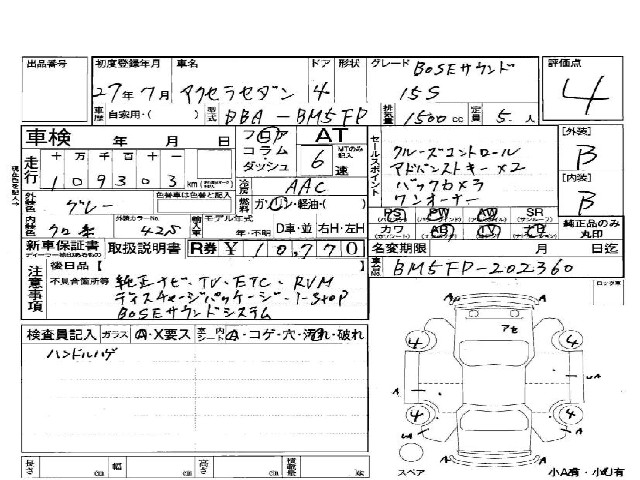 出品番号 初度登録年月 車名 ドア 形状 グレード BOSEサウンド 評価点
27年7月 アクセラセダン 4 15S 4
車歴 自家用・( ) 型式 DBA-BM5FP 排気量 1500cc 定員 5人
車検 年 月 日 フロア AT セールスポイント [外装]
コラム MTのみ記入 クルーズコントロール B
走行 十 万 千 百 十 ダッシュ 6速 アドバンストキー×2
109303 km 冷房 AAC バックカメラ [内装]
外装色 グレー 色替車は色替と記入 燃料 ガソリン・軽油・( ) ワンオーナー B
内装色 クロ 外装カラーNo. 42S 輸入車 モデル年式 年・不明 D車・並 右H・左H PS PW AW SR 純正品のみ丸印
カワ AB TV ナビ
新車保証書 取扱説明書 R券 ¥10,770 名変期限 月 日迄
注意事項 後日品【 】 車台No. BM5FP-202360
不具合箇所等 純正ナビ・TV・ETC・RVM
ディスチャージパッケージ・i-STOP
BOSEサウンドシステム
検査員記入 ガラス A・X要ス 室内シート A・コゲ・穴・汚れ・破れ
ハンドルハゲ
ロック車
アセ
A
A
4 4
A UA
4 4
A A
A
スペア
長さ cm 幅 cm 高さ cm 積載量 KG 小A有・小U有